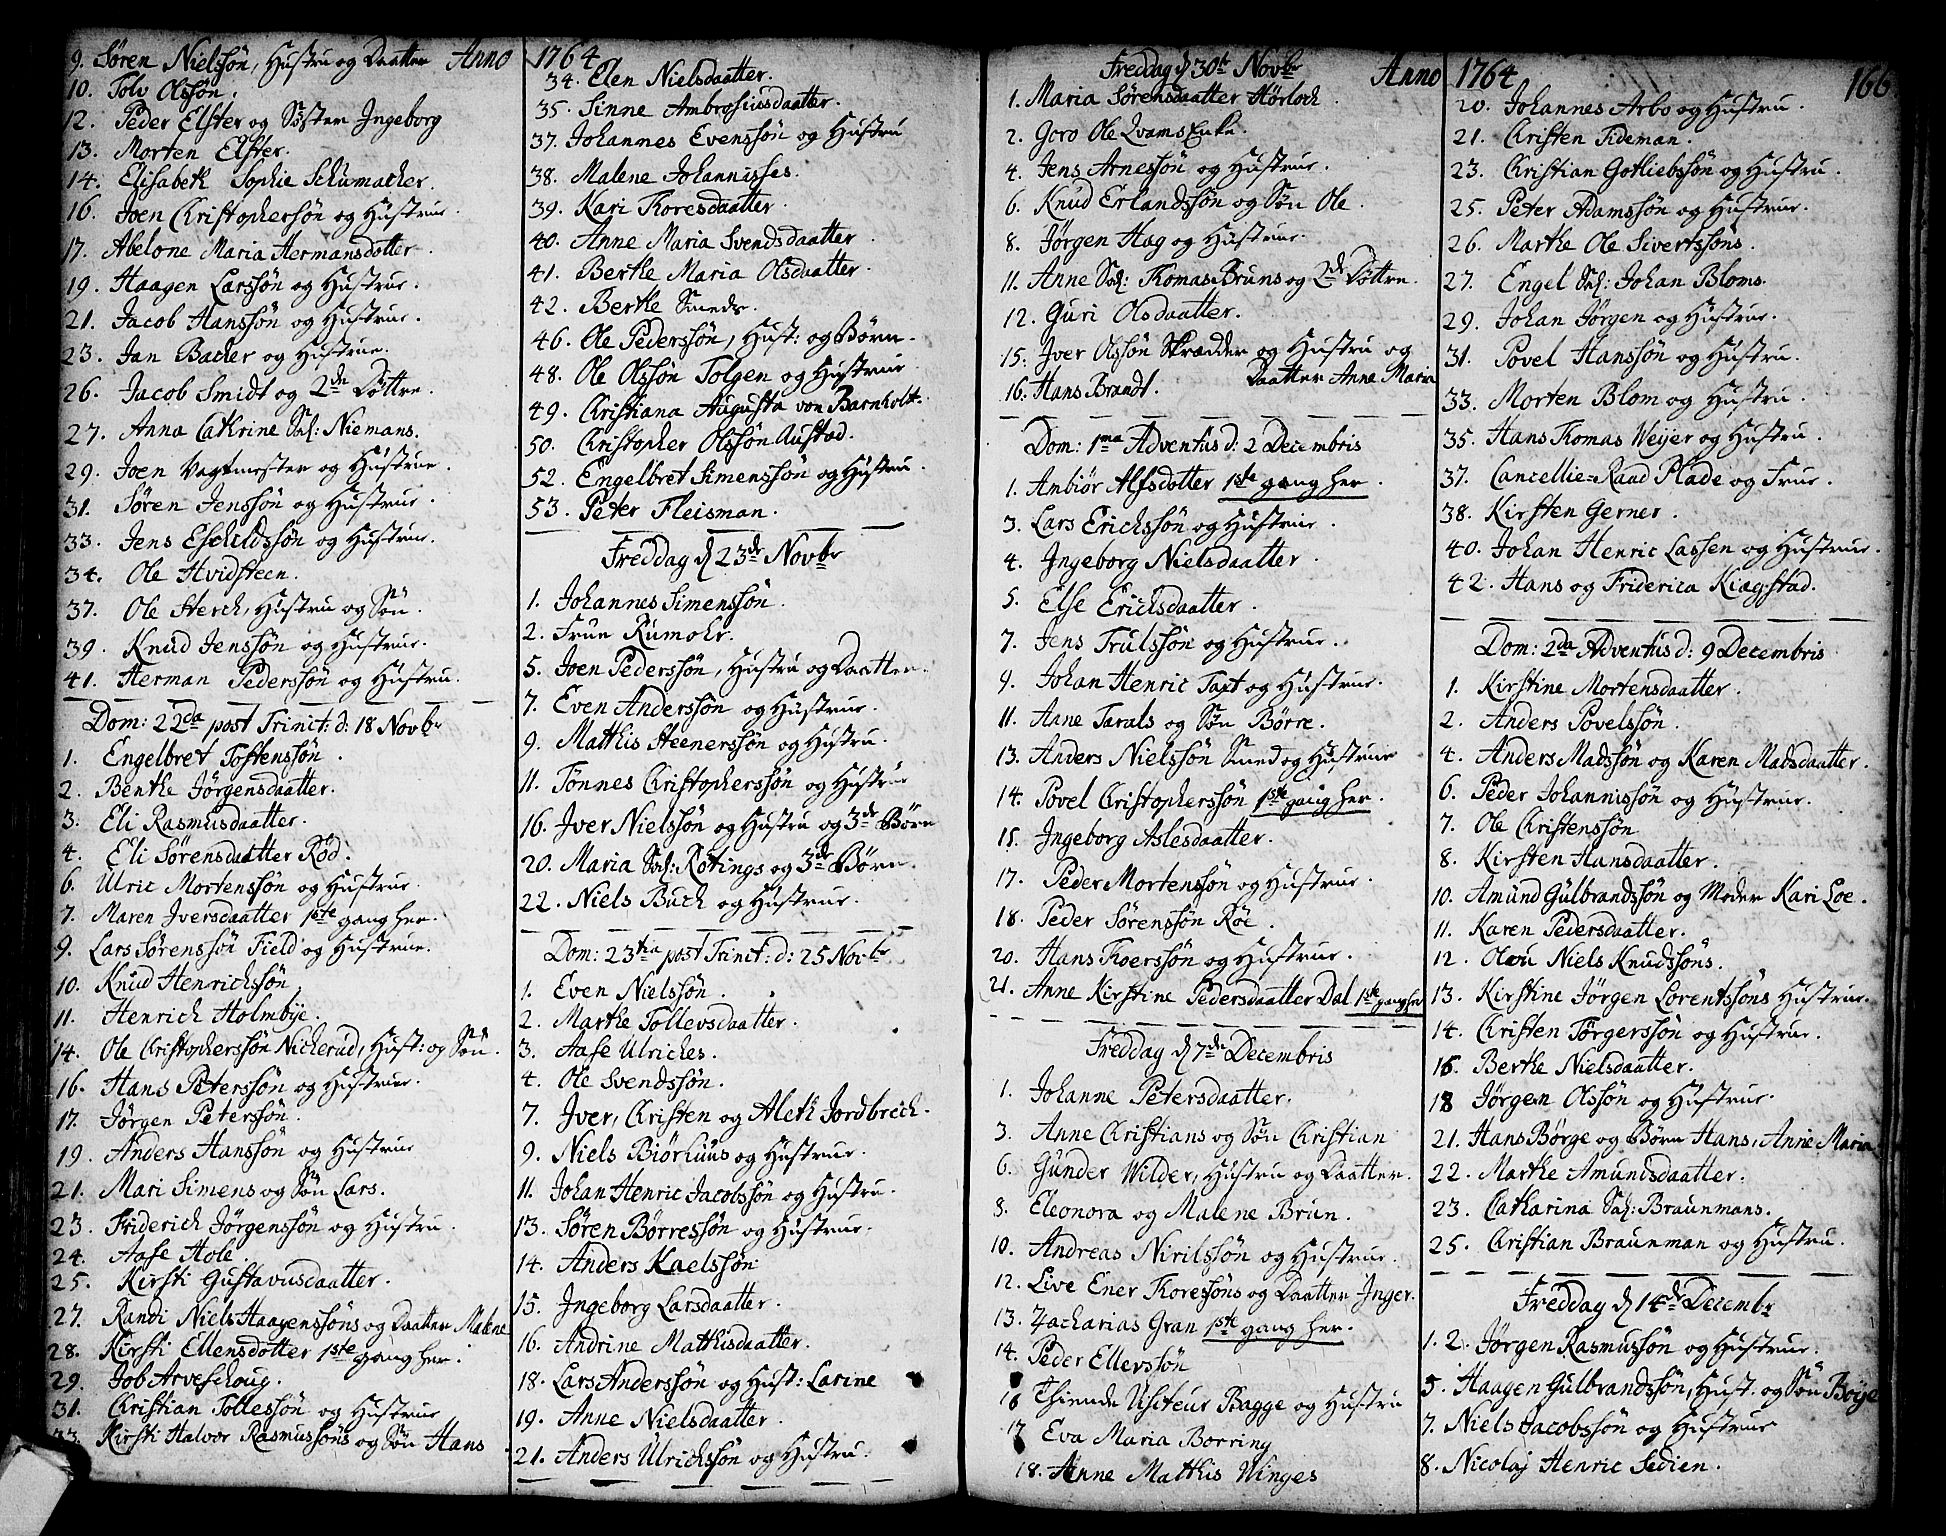 Anno 1764
9. Søren Nielssøn, Hustru og Daatter
10. Tolv Olssøn.
12. Peder Elster og Søster Ingeborg
13. Morten Elster.
14. Elisabeth Sophie Schumacher.
16. Joen Christophersøn og Hustrue.
17. Abelone Maria Hermansdotter.
19. Haagen Larssøn og Hustrue.
21. Jacob Hanssøn og Hustrue.
23. Jan Backer og Hustrue.
26. Jacob Smidt og 2de Døttre.
27. Anna Cathrine Sal: Niemans.
29. Joen Vagtmester og Hustrue.
31. Søren Jenssøn og Hustrue.
33. Jens Eschildssøn og Hustrue.
34. Ole Hvidsteen.
37. Ole Sterch, Hustru og Søn.
39. Knud Jenssøn og Hustrue.
41. Herman Pederssøn og Hustru.
Dom: 22da post Trinit: d: 18 Novbr
1. Engelbret Tostenssøn.
2. Benthe Jørgensdaatter.
3. Eli Rasmusdaatter.
4. Eli Sørensdaatter Rød.
6. Ulric Mortenssøn og Hustrue.
7. Maren Jversdaatter 1ste gang her.
9. Lars Sørenssøn Field og Hustrue.
10. Knud Henrichssøn
11. Henrich Holmbye.
14. Ole Christopherssøn Nickerud, Hust: og Søn.
16. Hans Peterssøn og Hustrue.
17. Jørgen Peterssøn.
19. Anders Hanssøn og Hustrue
21. Mari Simens og Søn Lars.
23. Friderich Jørgenssøn og Hustru.
24. Aase Hole.
25. Kirsti Gustavusdaatter.
27. Randi Niels Haagenssøns og Daatter Malene
28. Kirsti Ellensdotter 1ste gang her.
29. Job Arveschoug.
31. Christian Tollessøn og Hustrue
33. Kirsti Halvor Rasmussøns og Søn Hans
34. Elen Nielsdaatter.
35. Sinne Ambrosiusdaatter.
37. Johannes Evenssøn og Hustru
38. Malene Johannisses.
39. Kari Thoresdaatter.
40. Anne Maria Svendsdaatter.
41. Berthe Maria Olsdaatter.
42. Berthe Smeds.
46. Ole Pederssøn, Hust: og Børn.
48. Ole Olssøn Tolgen og Hustrue.
49. Christiana Augusta von Barnholt.
50. Christopher Olssøn Austad.
52. Engelbret Simenssøn og Hustru.
53. Peter Fleisman.
Freddag d 23de Novbr
1. Johannes Simenssøn.
2. Frue Rumohr.
5. Joen Pederssøn, Hustru og Daatter.
7. Even Anderssøn og Hustrue.
9. Mathis Steenerssøn og Hustru.
11. Tønnes Christopherssøn og Hustrue
16. Jver Nielssøn og Hustru og 3de Børn
20. Maria Sal: Røtings og 3de Børn.
22. Niels Buch og Hustrue.
Dom: 23tia post Trinit: d: 25 Novbr
1. Even Nielssøn.
2. Marthe Tollevsdaatter.
3. Aase Ulriches.
4. Ole Svendssøn.
7. Jver, Christen og Aleth Jordbrech.
9. Niels Biørhuus og Hustrue.
11. Johan Henric Jacobssøn og Hustru.
13. Søren Børressøn og Hustrue.
14. Anders Kaelssøn
15. Ingeborg Larsdaatter.
16. Andrine Mathisdaatter.
18. Lars Anderssøn og Hust: Larine
19. Anne Nielsdaatter.
21. Anders Ulrichssøn og Hustru.
Anno 1764
166
Freddag d 30te Novbr
1. Maria Sørensdaatter Hørloch.
2. Goro Ole Qvams Enke.
4. Jens Arnessøn og Hustrue.
6. Knud Erlandssøn og Søn Ole.
8. Jørgen Hag og Hustrue.
11. Anne Sal: Thomas Bruns og 2de Døttre.
12. Guri Olsdaatter.
15. Jver Olssøn Skrædder og Hustru og Daatter Anne Maria
16. Hans Brandt.
Dom: 1ma Adventus d: 2 Decembris
1. Anbiør Alfsdotter 1ste gang her.
3. Lars Erichssøn og Hustrue.
4. Ingeborg Nielsdaatter.
5. Else Erichsdaatter.
7. Jens Trulssøn og Hustrue.
9. Johan Henric Taxt og Hustrue.
11. Anne Tarals og Søn Børre.
13. Anders Nielssøn Smed og Hustrue
14. Povel Christopherssøn 1ste gang her.
15. Ingeborg Aslesdaatter.
17. Peder Mortenssøn og Hustrue.
18. Peder Sørenssøn Røe.
20. Hans Thoerssøn og Hustrue.
21. Anne Kirstine Pedersdaatter Dal 1ste gang her
Freddag d 7de Decembris
1. Johanne Petersdaatter.
3. Anne Christians og Søn Christian
6. Gunder Wilder, Hustru og Daatter.
8. Eleonora og Malene Brun.
10. Andreas Nirilssøn og Hustrue.
12. Live Ener Thoresøns og Daatter Inger.
13. Zacharias Gran 1ste gang her.
14. Peder Ellevssøn
16 Thiende Visiteur Bagge og Hustru
17 Eva Maria Borring
18. Anne Matthis Winges
20. Johannes Arbo og Hustru.
21. Christen Tideman.
23. Christian Gotliebssøn og Hustru.
25. Peter Adamssøn og Hustrue.
26. Marthe Ole Sivertssøns.
27. Engel Sal: Johan Bloms.
29. Johan Jørgen og Hustrue.
31. Povel Hanssøn og Hustru.
33. Morten Blom og Hustru.
35. Hans Thomas Weijer og Hustru.
37. Cancellie-Raad Plade og Frue.
38. Kirsten Gerner.
40. Johan Henric Lassen og Hustrue.
42. Hans og Friderica Kiægstad.
Dom: 2da Adventus d: 9 Decembris
1. Kirstine Mortensdaatter.
2. Anders Povelssøn.
4. Anders Madssøn og Karen Madsdaatter.
6. Peder Johannissøn og Hustrue.
7. Ole Christenssøn
8. Kirsten Hansdaatter.
10. Amund Gulbrandssøn og Moder Kari Loe.
11. Karen Pedersdaatter.
12. Olou Niels Knudssøns.
13. Kirstine Jørgen Lorentssøns Hustrue.
14. Christen Jørgerssøn og Hustrue.
16. Berthe Nielsdaatter.
18 Jørgen Olssøn og Hustrue.
21. Hans Børge og Børn Hans, Anne Maria
22. Marthe Amundsdaatter.
23. Catharina Sal: Braunmans.
25. Christian Braunman og Hustru.
Freddag d 14de Decembr
1. 2. Jørgen Rasmussøn og Hustrue.
5. Haagen Gulbrandssøn, Hust. og Søn Boye
7. Niels Jacobssøn og Hustrue
8. Nicolaj Henric Sedien.